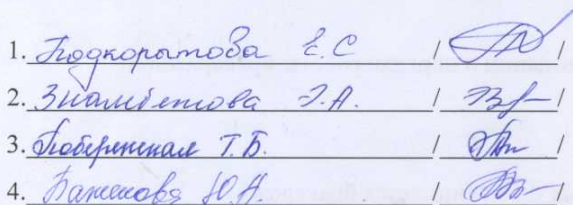 1. Подкорытова Е.С / /
2. Зиамбетова Э.А. / /
3. Побережная Т.Б. / /
4. Баженова Ю.Н. / /